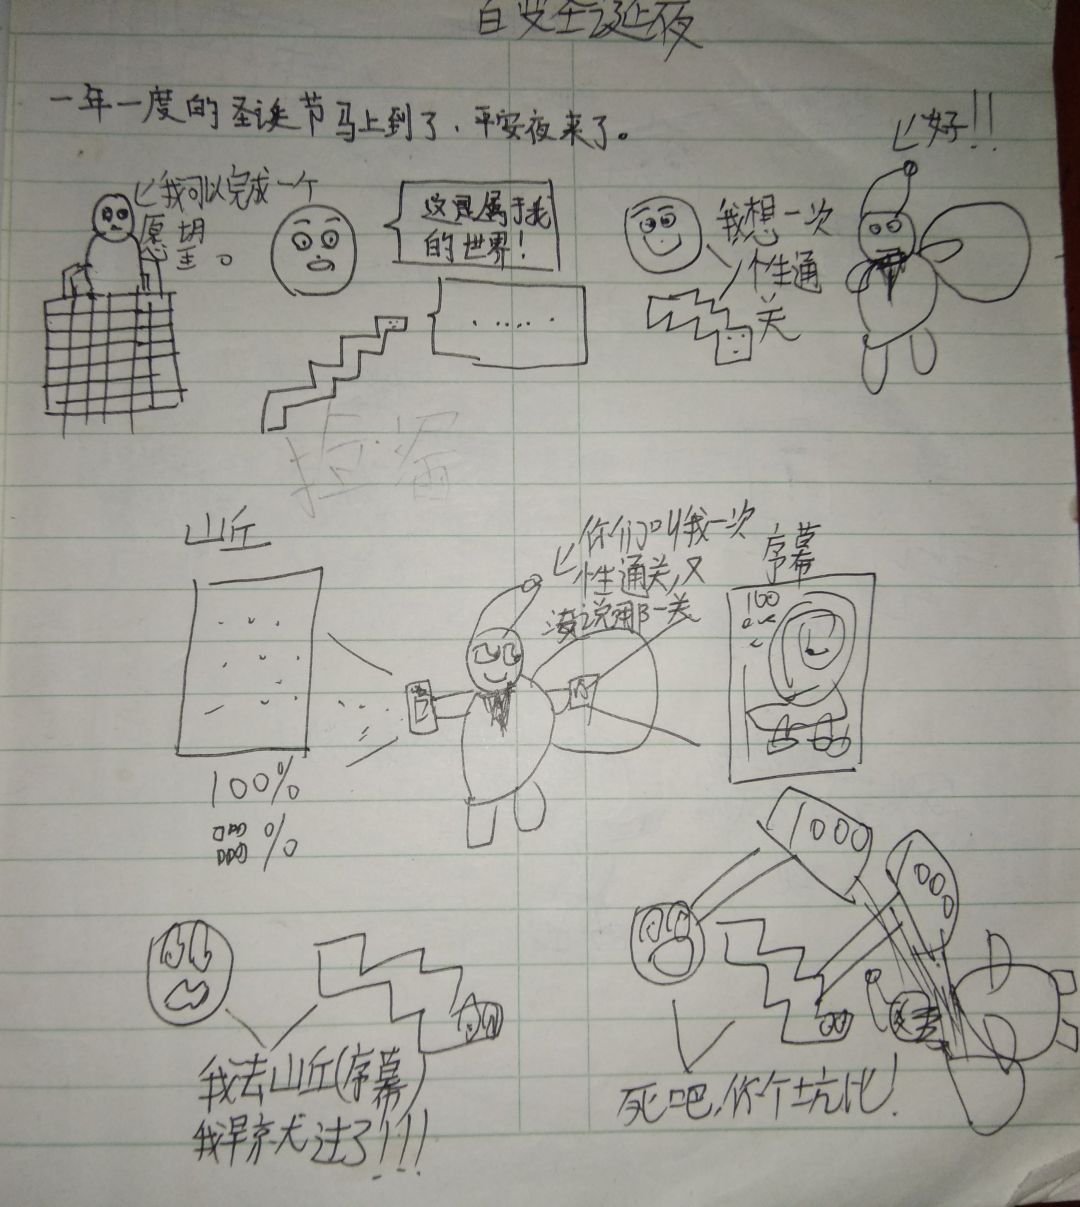 圣诞夜
一年一度的圣诞节马上到了，平安夜来了。
好！！
我可以完成一个
愿望。
这是属于我
的世界！
......
我想一次
性通
关
山丘
你们叫我一次
性通关，又
没说哪一关
序幕
100
100%
%
1000
000
我去山丘（序幕）
我早就过了！！！
死吧，你个坑比！